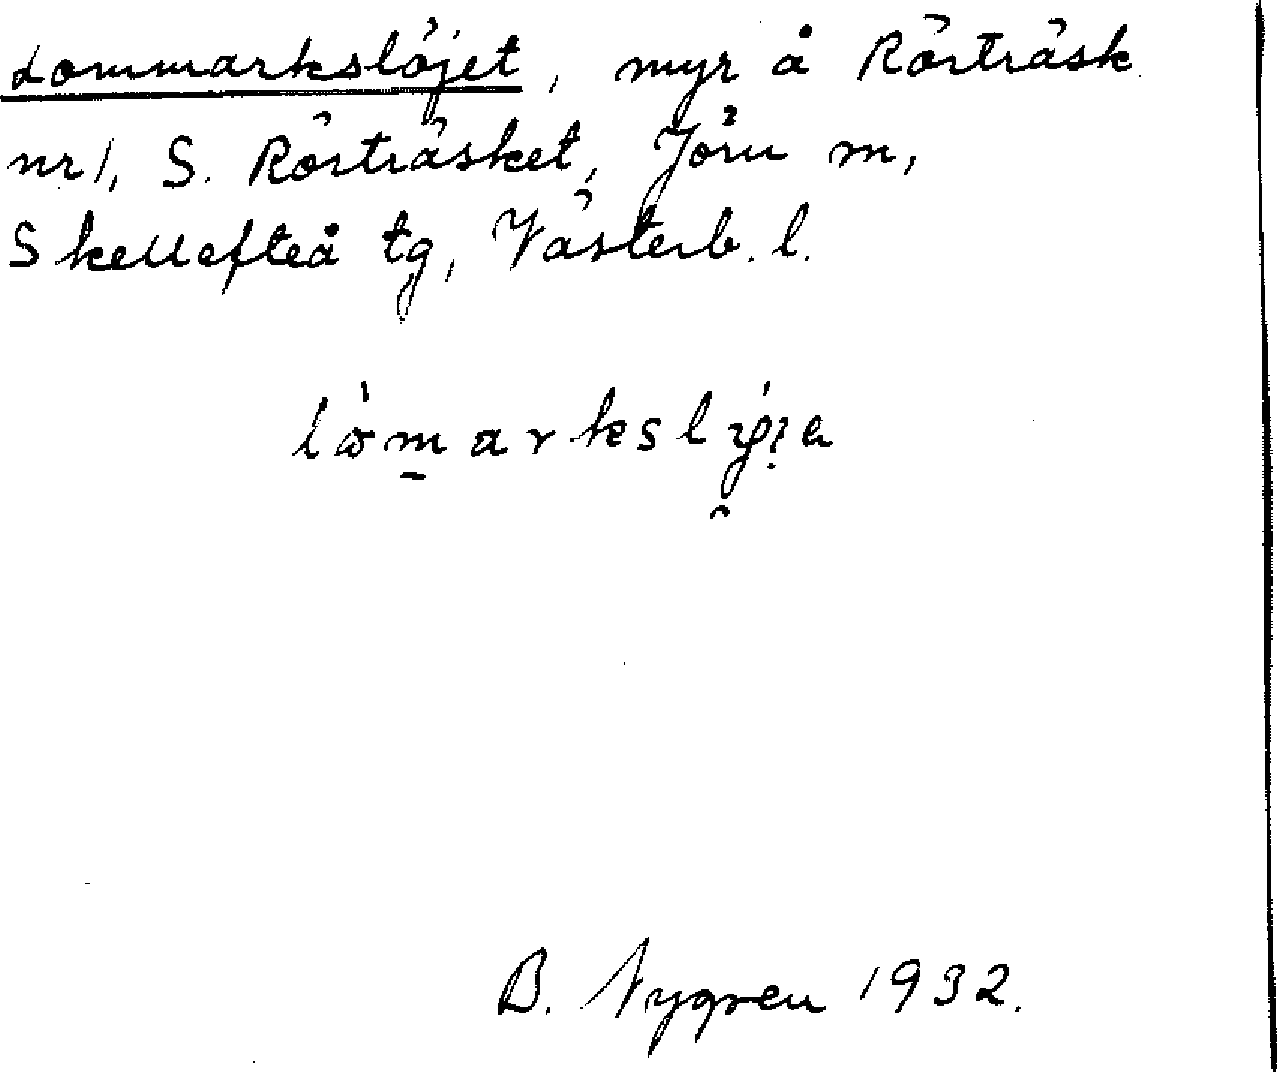 Lommarkslöjet, myr å Rörträsk
nr 1, S. Rörträsket, Jörn m,
Skellefteå tg, Västerb. l.
B. Nygren 1932.